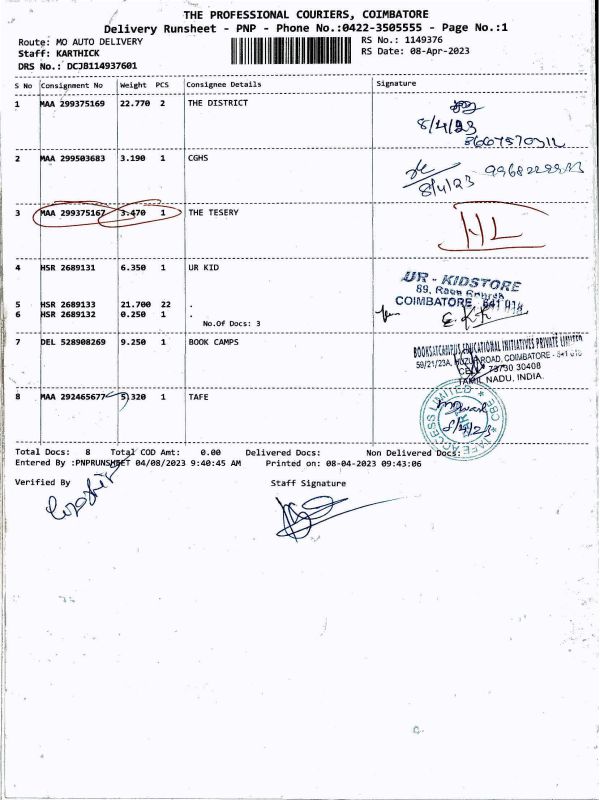 THE PROFESSIONAL COURIERS, COIMBATORE
Delivery Runsheet - PNP - Phone No.:0422-3505555 - Page No.:1
Route: MO AUTO DELIVERY RS No.: 1149376
Staff: KARTHICK RS Date: 08-Apr-2023
DRS No.: DCJB114937601
S No Consignment No Weight PCS Consignee Details Signature
1 MAA 299375169 22.770 2 THE DISTRICT
8/4/23
2 MAA 299503683 3.190 1 CGHS
8/4/23
3 MAA 299375167 3.470 1 THE TESERY
NL
4 HSR 2689131 6.350 1 UR KID
UR - KIDSTORE
89,
COIMBATORE 641 018
5 HSR 2689133 21.700 22 .
6 HSR 2689132 0.250 1 .
No.Of Docs: 3
7 DEL 528908269 9.250 1 BOOK CAMPS
BOOKSATCAMPUS EDUCATIONAL INITIATIVES PRIVATE LIMITED
59/21/23A, ROAD, COIMBATORE - 641 018
73730 30408
TAMIL NADU, INDIA.
8 MAA 292465677 5.320 1 TAFE
TAFE ACCESS LIMITED * CBE *
8/4/23
Total Docs: 8 Total COD Amt: 0.00 Delivered Docs: Non Delivered Docs:
Entered By :PNPRUNSHEET 04/08/2023 9:40:45 AM Printed on: 08-04-2023 09:43:06
Verified By Staff Signature